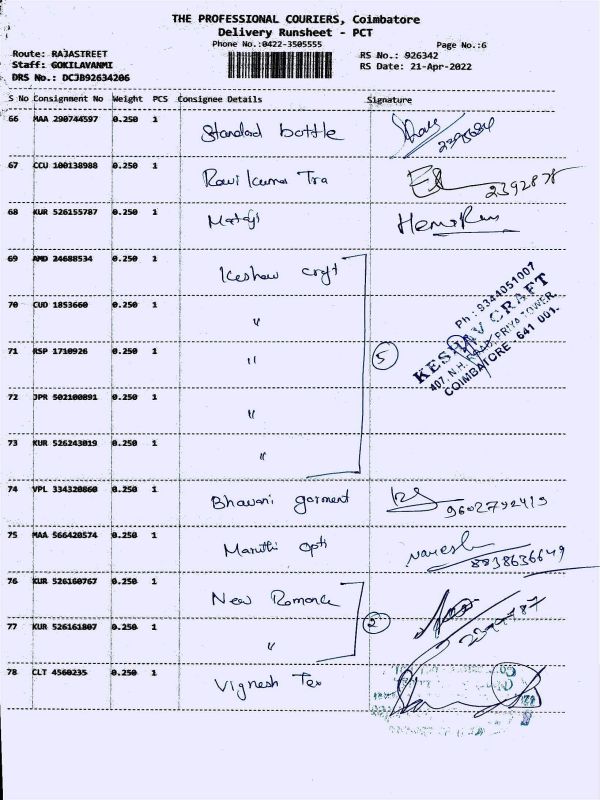 THE PROFESSIONAL COURIERS, Coimbatore
Delivery Runsheet - PCT
Phone No.:0422-3505555
Page No.:6
Route: RAJASTREET
RS No.: 926342
Staff: GOKILAVANMI
RS Date: 21-Apr-2022
DRS No.: DCJB92634206
S No Consignment No Weight PCS Consignee Details Signature
66 MAA 290744597 0.250 1 Standard bottle
67 CCU 100138988 0.250 1 Ravi Kumar Tra 2392878
68 KUR 526155787 0.250 1 Mataji
69 AMD 24688534 0.250 1 Keshav craft
70 CUD 1853660 0.250 1 "
71 RSP 1710926 0.250 1 " 5
72 JPR 502100891 0.250 1 "
73 KUR 526243019 0.250 1 "
Ph : 9344051007
KESHAV CRAFT
407, N.H. ROAD, PRIYA TOWER,
COIMBATORE - 641 001.
74 VPL 334320860 0.250 1 Bhavani garment 9602792419
75 MAA 566420574 0.250 1 Maruthi Opti naresh 8838636649
76 KUR 526160767 0.250 1 New Romance
77 KUR 526161807 0.250 1 " 2
78 CLT 4560235 0.250 1 Vignesh Tex